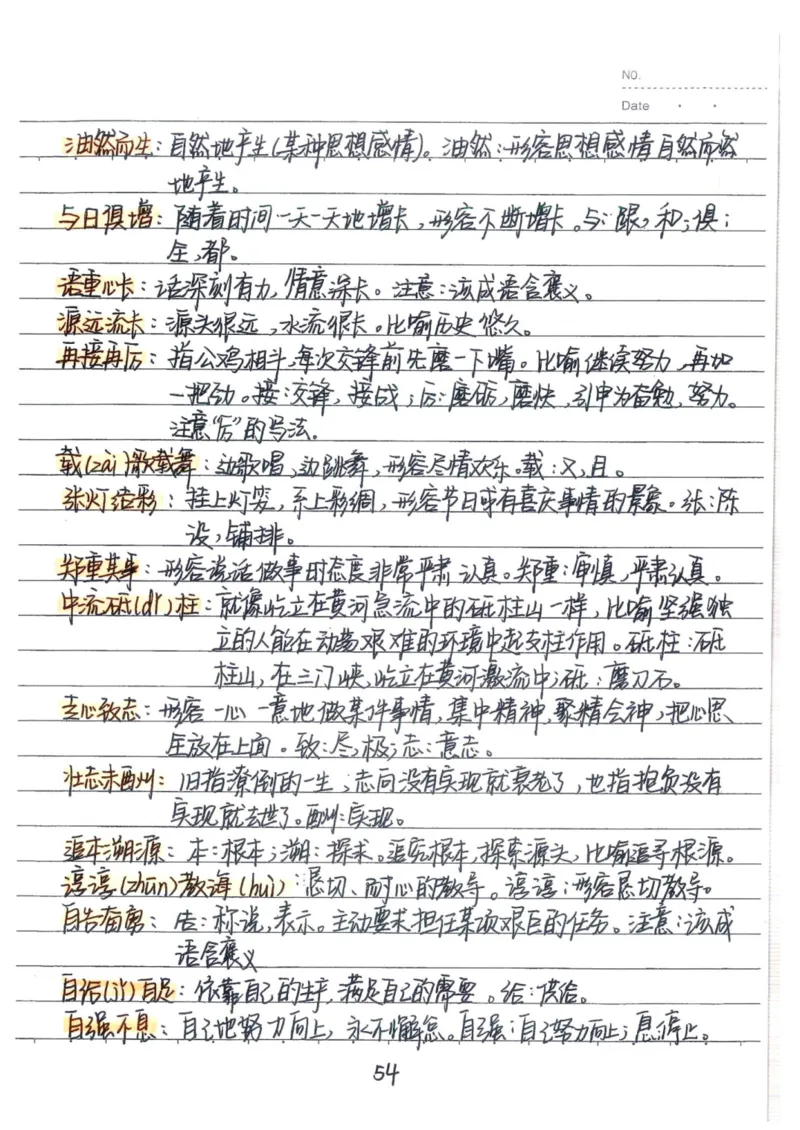 NO.
Date
油然而生：自然地产生(某种思想感情)。油然：形容思想感情自然而然
地产生。
与日俱增：随着时间一天一天地增长，形容不断增长。与：跟，和；俱：
全，都。
语重心长：话深刻有力，情意深长。注意：该成语含褒义。
源远流长：源头很远，水流很长。比喻历史悠久。
再接再厉：指公鸡相斗，每次交锋前先磨一下嘴。比喻继续努力，再加
一把劲。接：交锋，接战；厉：磨砺，磨快，引申为奋勉，努力。
注意“厉”的写法。
载(zài)歌载舞：边歌唱，边跳舞，形容尽情欢乐。载：又，且。
张灯结彩：挂上灯笼，系上彩绸，形容节日或有喜庆事情的景象。张：陈
设，铺排。
郑重其事：形容说话做事时态度非常严肃认真。郑重：审慎，严肃认真。
中流砥(dǐ)柱：就像屹立在黄河急流中的砥柱山一样，比喻坚强独
立的人能在动荡艰难的环境中起支柱作用。砥柱：砥
柱山，在三门峡，屹立在黄河激流中；砥：磨刀石。
专心致志：形容一心一意地做某件事情，集中精神，聚精会神，把心思
全放在上面。致：尽，极；志：意志。
壮志未酬：旧指潦倒的一生，志向没有实现就衰老了，也指抱负没有
实现就去世了。酬：实现。
追本溯源：本：根本；溯：探求。追究根本，探索源头，比喻追寻根源。
谆谆(zhūn)教诲(huì)：恳切、耐心的教导。谆谆：形容恳切教导。
自告奋勇：告：称说，表示。主动要求担任某项艰巨的任务。注意：该成
语含褒义
自给(jǐ)自足：依靠自己的生产，满足自己的需要。给：供给。
自强不息：自己地努力向上，永不懈怠。自强：自己努力向上；息：停止。
54